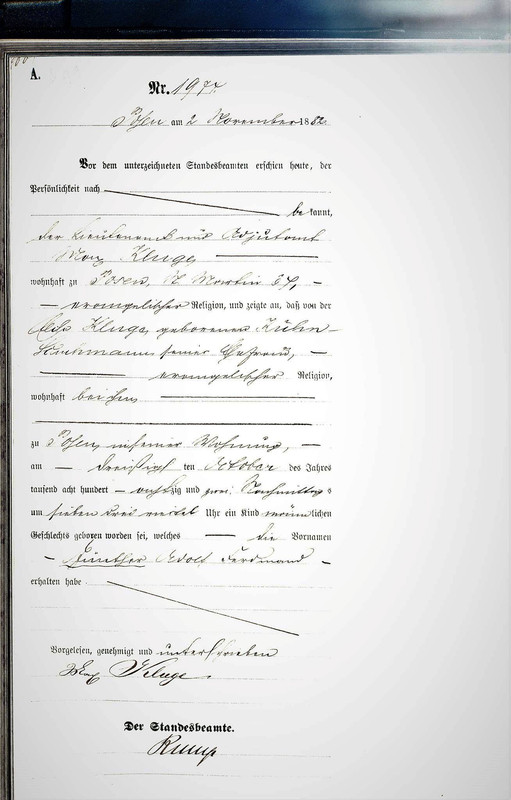 A.
Nr. 1977
Posen am 2 November 1882.
Vor dem unterzeichneten Standesbeamten erschien heute, der
Persönlichkeit nach
bekannt,
der Lieutenant und Adjutant
Max Kluge,
wohnhaft zu Posen, St Martin 64,
evangelischer Religion, und zeigte an, daß von der
Kluge, geborenen Kühn-
seiner Ehefrau,
evangelischer Religion,
wohnhaft bei ihm
zu Posen, in seiner Wohnung,
am dreißigsten October des Jahres
tausend acht hundert achtzig und zwei Nachmittags
um sieben drei viertel Uhr ein Kind männlichen
Geschlechts geboren worden sei, welches die Vornamen
Günther Adolf Ferdinand
erhalten habe
Vorgelesen, genehmigt und unterschrieben
Max Kluge.
Der Standesbeamte.